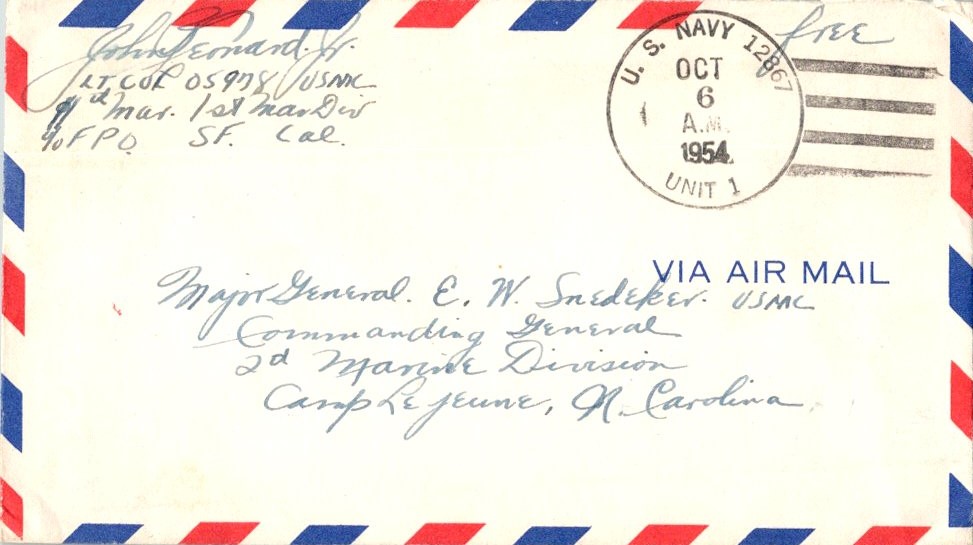 John Leonard. Jr.
LT COL 05978 USMC
Mar. 1st Mar Div
c/o FPO SF. Cal.
free
U. S. NAVY 12867
OCT
6
A.M.
1954
UNIT 1
VIA AIR MAIL
Major General. E. W. Snedeker. USMC
Commanding General
2d Marine Division
Camp Lejeune, N. Carolina